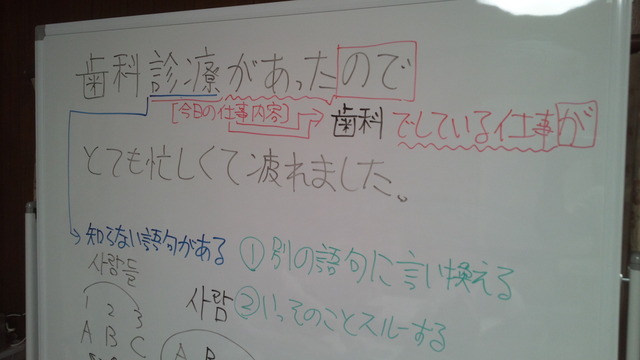 歯科診療があったので
[今日の仕事内容]
歯科でしている仕事が
とても忙しくて疲れました。
知らない語句がある
①別の語句に言い換える
사람들
사람
②いっそのことスルーする
1 2 3
A B C
A B